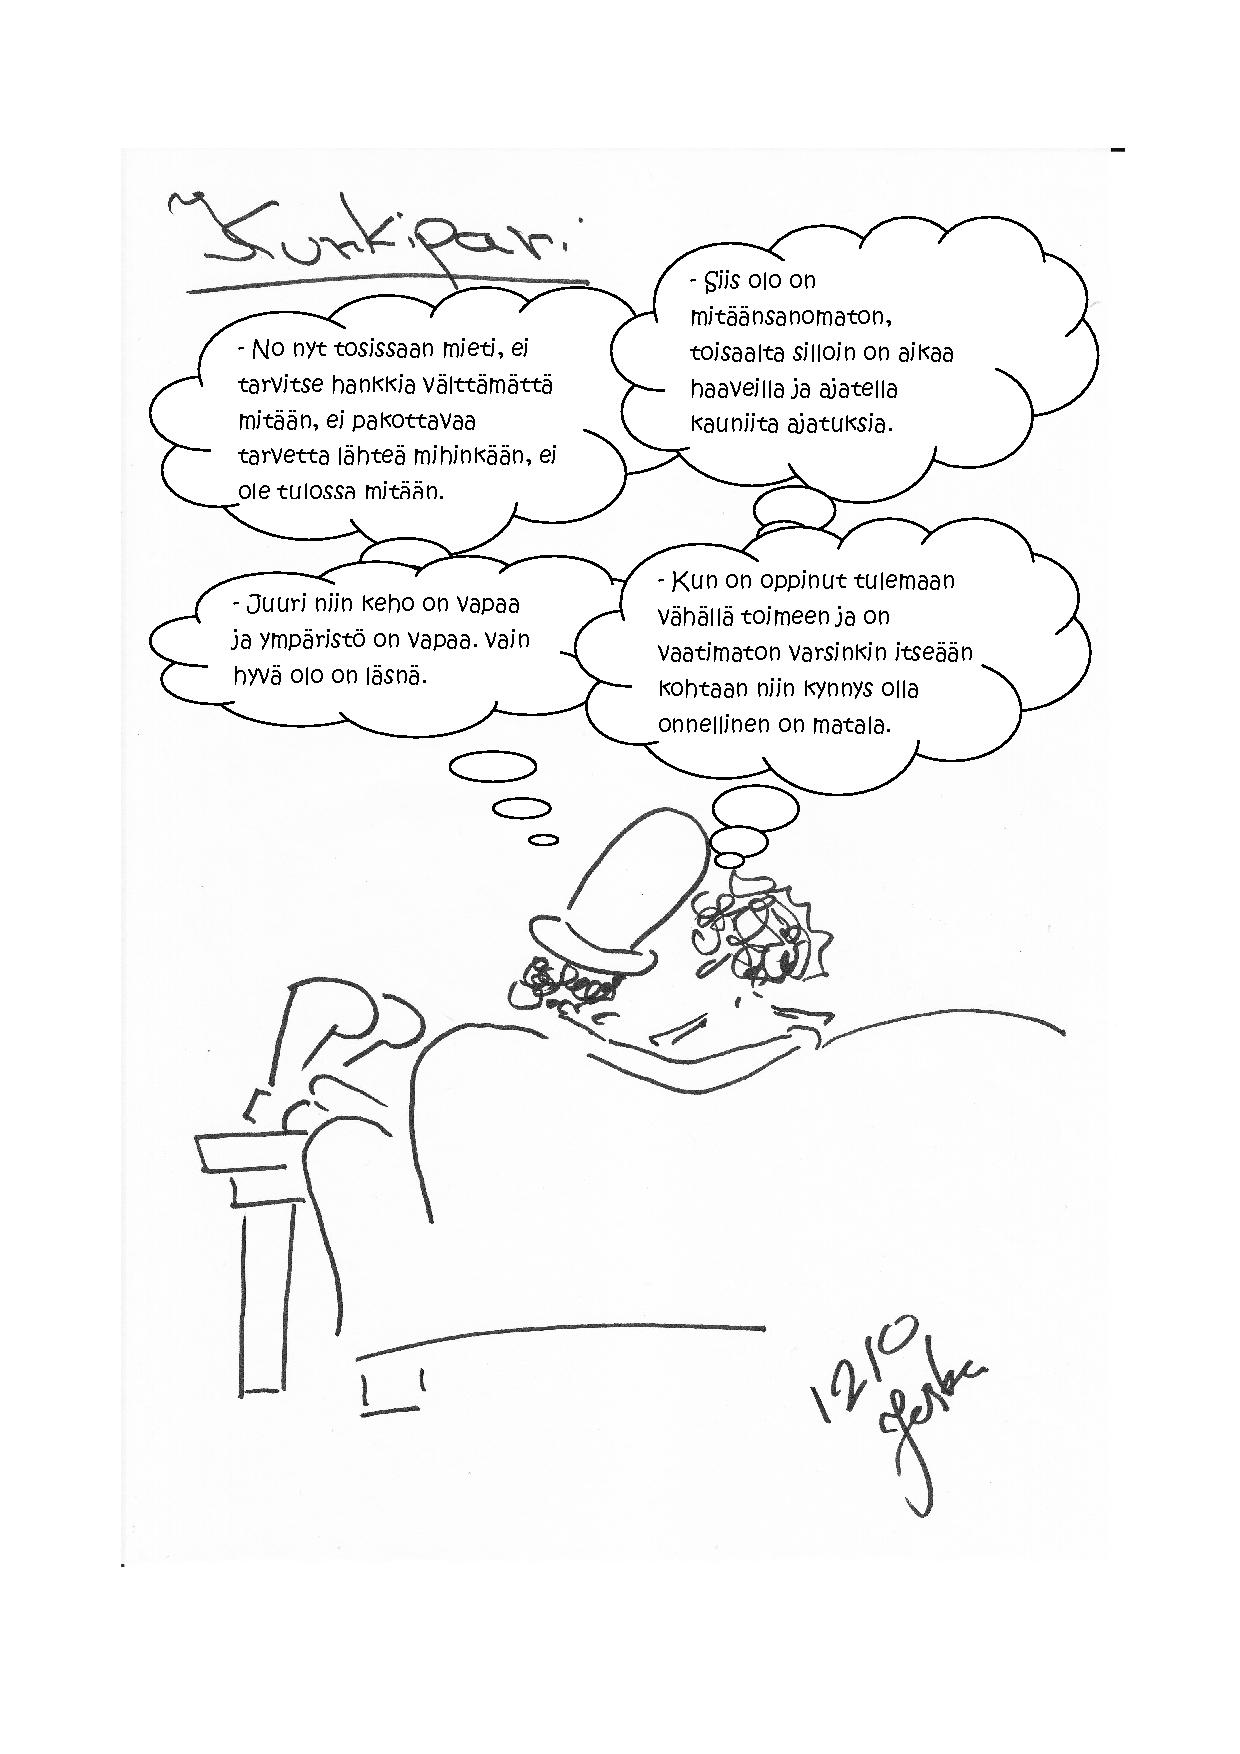 Kurkipari
- No nyt tosissaan mieti, ei
tarvitse hankkia välttämättä
mitään, ei pakottavaa
tarvetta lähteä mihinkään, ei
ole tulossa mitään.
- Siis olo on
mitäänsanomaton,
toisaalta silloin on aikaa
haaveilla ja ajatella
kauniita ajatuksia.
- Juuri niin keho on vapaa
ja ympäristö on vapaa. Vain
hyvä olo on läsnä.
- Kun on oppinut tulemaan
vähällä toimeen ja on
vaatimaton varsinkin itseään
kohtaan niin kynnys olla
onnellinen on matala.